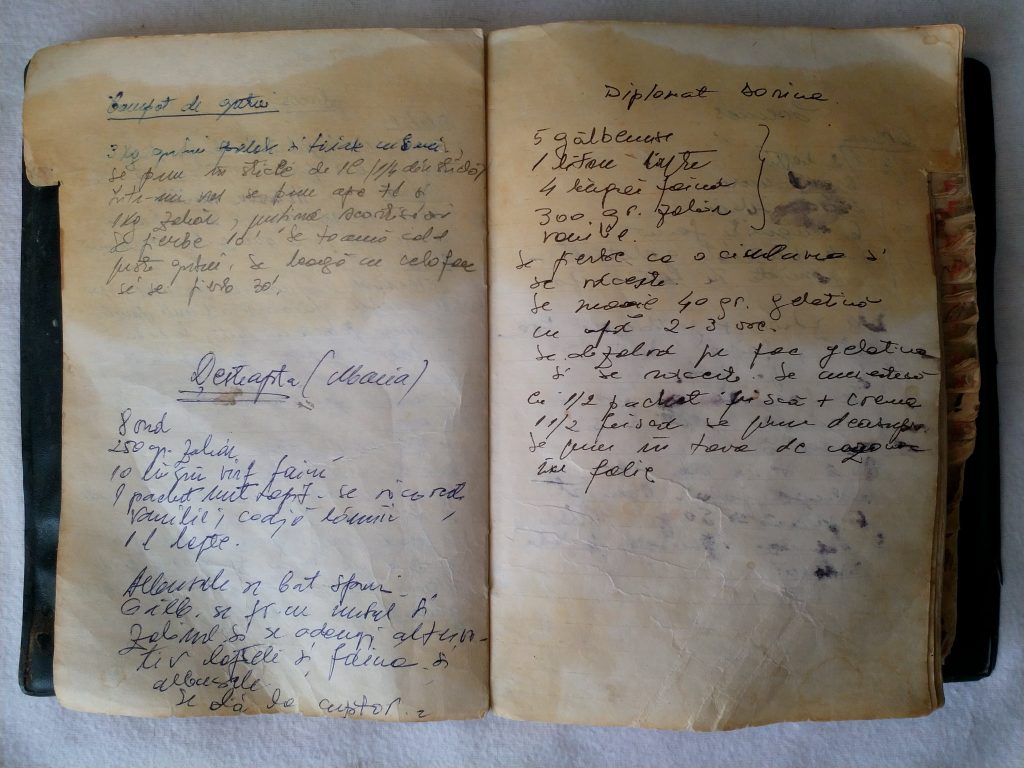 Compot de gutui
3 kg gutui
se pun în sticle de 1 l
se pun apă
1 kg zahăr, puțină scorțișoară
se fierbe 10'. Se toarnă
peste gutui. Se leagă cu celofan
și se fierb 30'.
Deșteapta (Maria)
8 ouă
250 gr. zahăr
10 linguri vîrf făină
1 pachet unt topit - se răcorește
vanilie, coajă lămîie,
1 l lapte.
Albușele se bat spumă
Gălb. se fr. cu untul și
zahărul și se adaugă alterna-
tiv laptele și făina și
albușele
Se dă la cuptor.
Diplomat Dorina
5 gălbenușe
1 litru lapte
4 linguri făină
300 gr. zahăr
vanilie.
Se fierbe ca o și
se răcește.
Se moaie 40 gr. gelatină
cu apă 2-3 ore.
Se pe foc gelatina
și se răcește. Se amestecă
cu 1/2 pachet frișcă + crema
1 1/2 frișcă se pune deasupra
Se pun în tava de
în folie